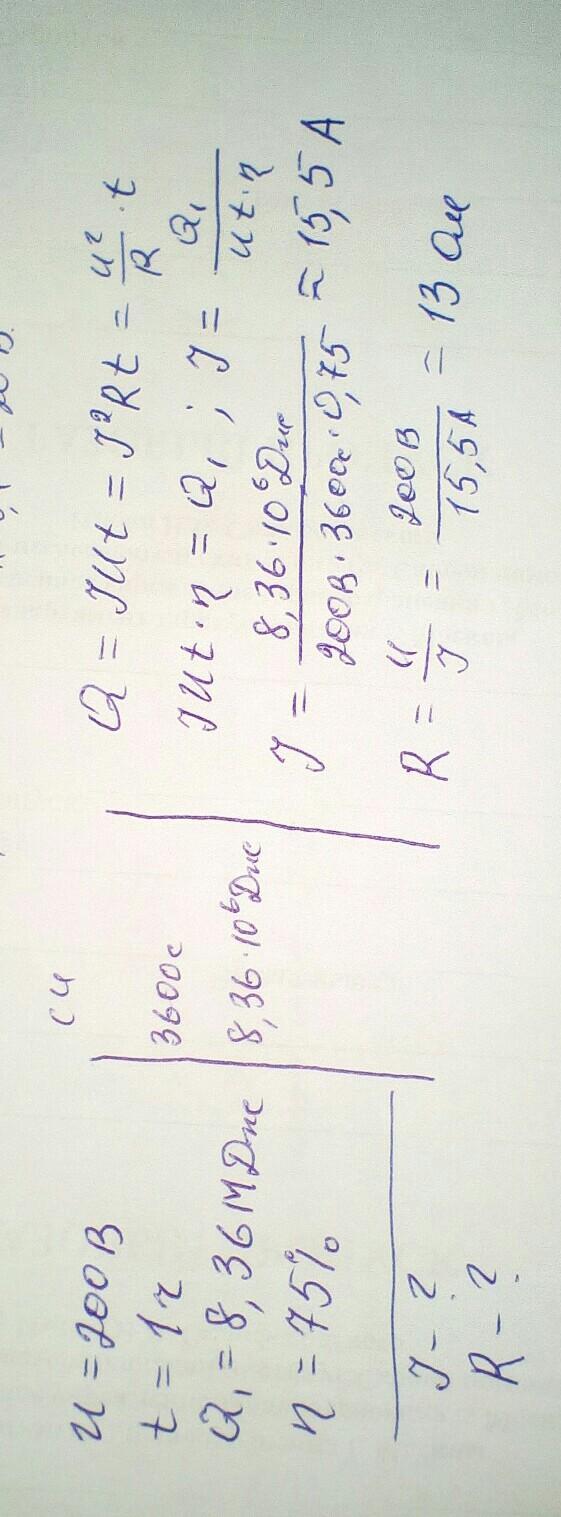 U = 200В
t = 1ч
Q₁ = 8,36 МДж
η = 75%
I - ?
R - ?
СИ
3600с
8,36·10⁶Дж
Q = IUt = I²Rt = U²/R · t
IUt·η = Q₁ ; I = Q₁/Ut·η
I = 8,36·10⁶Дж/200В·3600с·0,75 ≈ 15,5 А
R = U/I = 200В/15,5А = 13 Ом